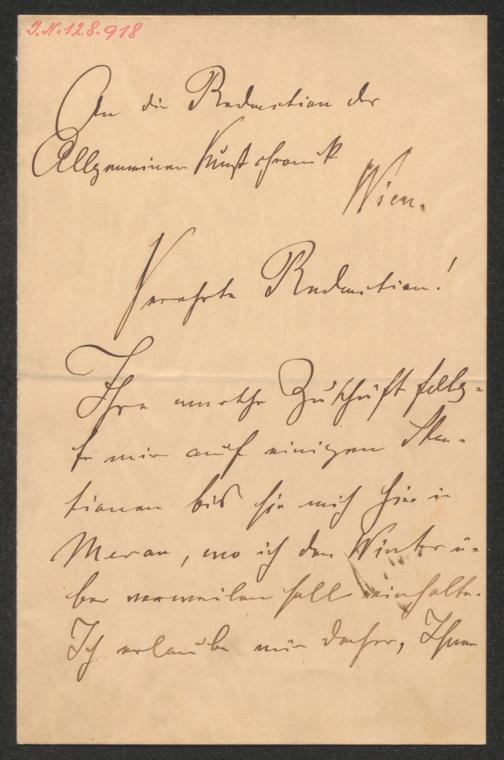 J.N. 128.918
An die Redaction der
Allgemeinen Kunstchronik
Wien.
Verehrte Redaction!
Ihre werthe Zuschrift folg-
te mir auf einigen Sta-
tionen bis sie mich hier in
Meran, wo ich den Winter ü-
ber verweilen soll einholte.
Ich erlaube mir daher, Ihnen